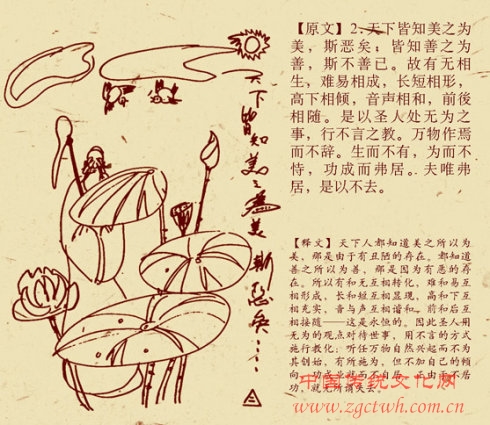 【原文】2.天下皆知美之为
美，斯恶矣；皆知善之为
善，斯不善已。故有无相
生，难易相成，长短相形，
高下相倾，音声相和，前後
相随。是以圣人处无为之
事，行不言之教。万物作焉
而不辞。生而不有，为而不
恃，功成而弗居。夫唯弗
居，是以不去。
天下皆知美之为美斯恶矣……
三
【释文】天下人都知道美之所以为
美，那是由于有丑陋的存在。都知道
善之所以为善，那是因为有恶的存
在。所以有和无互相转化，难和易互
相形成，长和短互相显现，高和下互
相充实，音与声互相谐和，前和后互
相接随——这是永恒的。因此圣人用
无为的观点对待世事，用不言的方式
施行教化；听任万物自然兴起而不为
其创始，有所施为，但不加自己的倾
向，功成业就而不自居。正由于不居
功，就无所谓失去。
中国传统文化网
www.zgctwh.com.cn